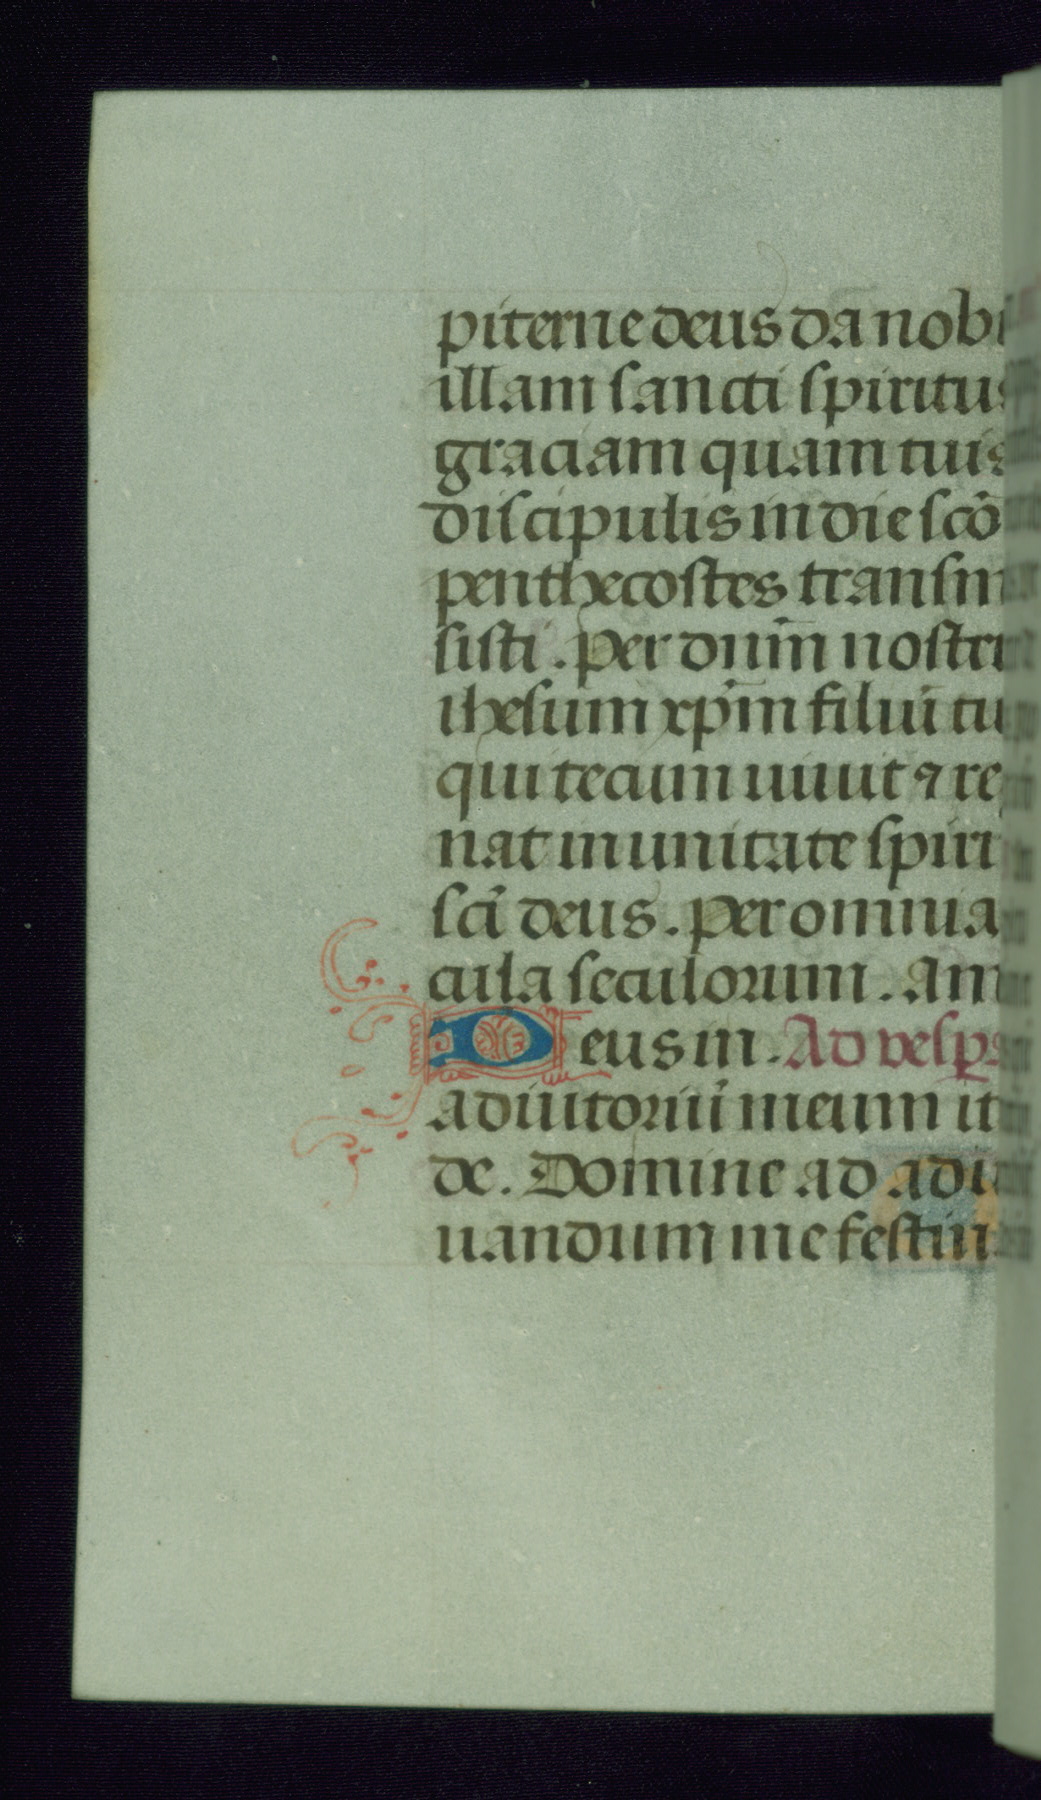 piterne deus da nobi
illam sancti spiritus
graciam quam tuis
discipulis in die scō
penthecostes transm
sisti. per dnm̄ nostr
ihesum xp̄m filiuī tu
qui tecum uiuit ⁊ re
nat in unitate spiri
scī deus. per omnia
cula seculorum. Am
Deus in. Ad vesp̄
adiutoriuī meum it
de. Domine ad adi
uandum me festin